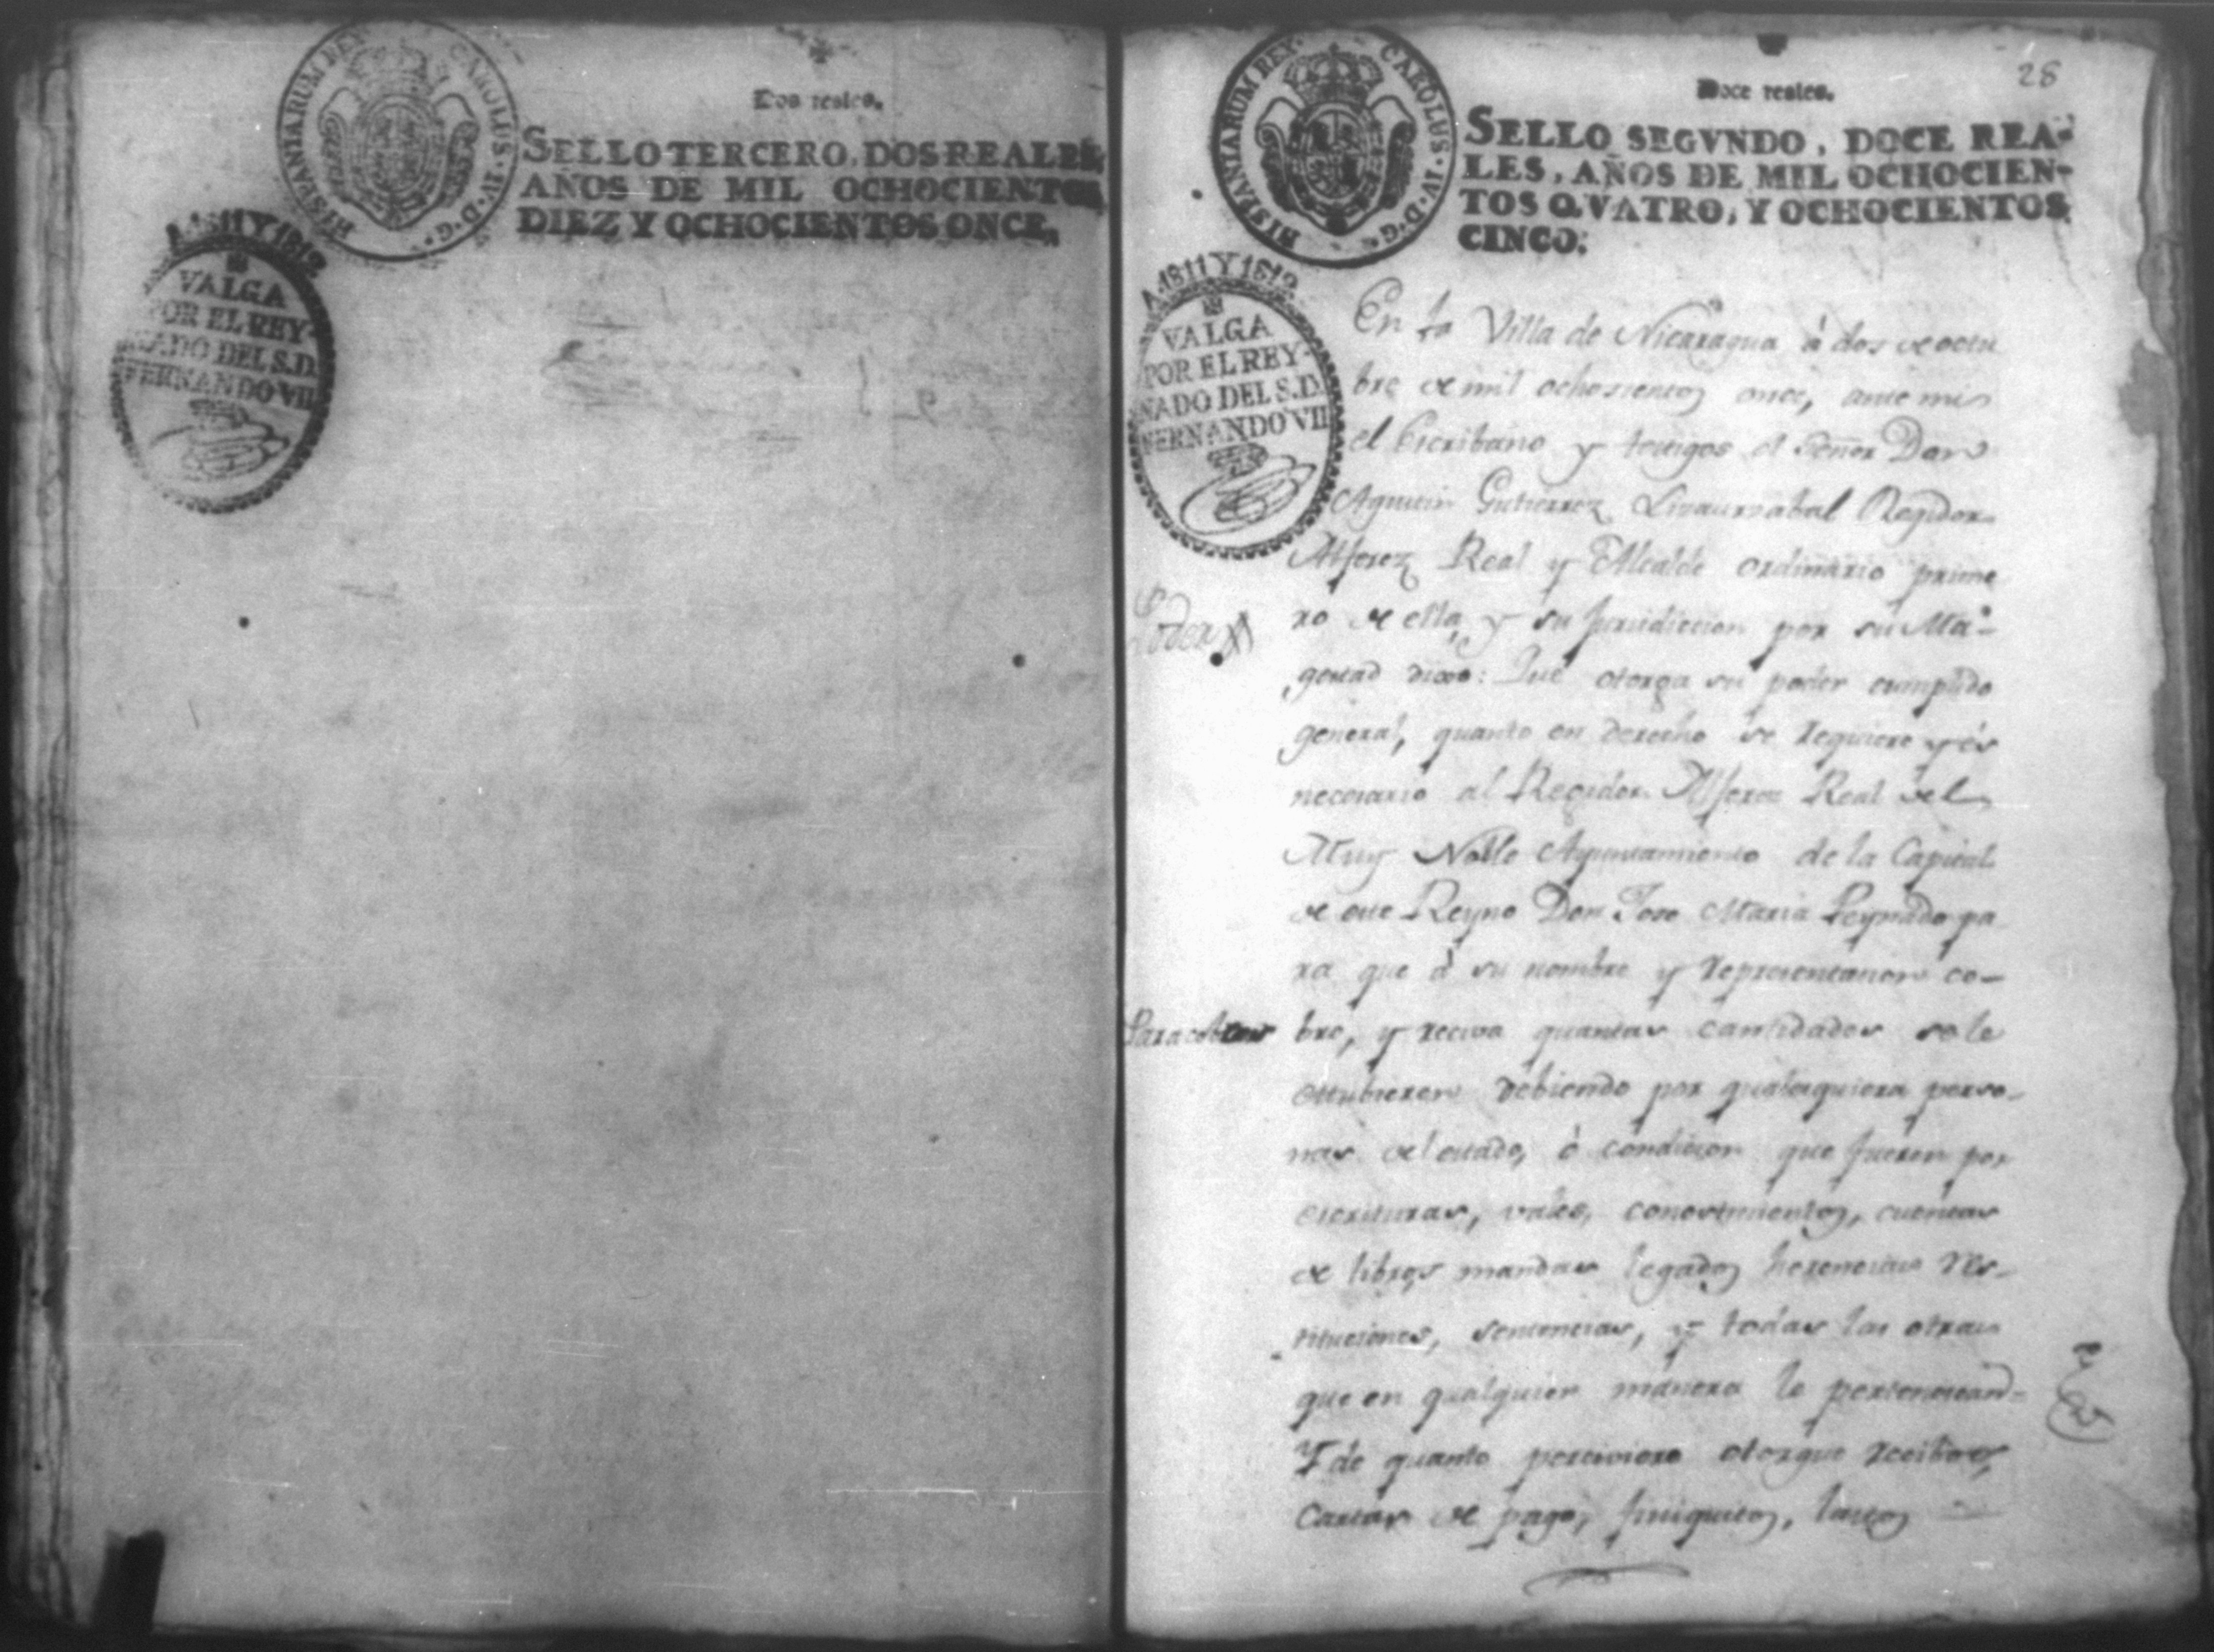 HISPANIARUM REX CAROLUS·IV·D·G·
Dos reales.
SELLO TERCERO, DOS REALES,
AÑOS DE MIL OCHOCIENTOS
DIEZ Y OCHOCIENTOS ONCE,
A. 1811 Y 1812
VALGA
POR EL REY-
NADO DEL S.D.
FERNANDO VII
HISPANIARUM REX· CAROLUS·IV·D·G·
28
Doce reales.
SELLO SEGVNDO, DOCE REA-
LES, AÑOS DE MIL OCHOCIEN-
TOS QVATRO, Y OCHOCIENTOS
CINCO.
A. 1811 Y 1812
VALGA
POR EL REY-
NADO DEL S.D.
FERNANDO VII
Poder
Para cobrar
En la Villa de Nicaragua à dos de octu
bre de mil ochosientos once, ante mi
el Escribano y testigos el Señor Don
Agustin Gutierrez Lisaurzabal Regidor
Alferez Real y Alcalde ordinario prime
ro de ella, y su jurisdiccion por su Ma-
gestad dixo: Que otorga su poder cumplido
general, quanto en derecho se requiere y és
necesario al Regidor Alferez Real del
Muy Noble Ayuntamiento de la Capital
de este Reyno Don Jose Maria Peynado pa
ra que à su nombre y representacion co-
bre, y reciva quantas cantidades se le
estubieren debiendo por qualesquiera perso-
nas del estado, ò condicion que fueren por
escrituras, vales, conosimientos, cuentas
de libros mandas legados herencias res-
tituciones, sentencias, y todas las otras
que en qualquier manera le pertenescan-
Y de quanto perciviere otorgue recibos,
Cartas de pago, finiquitos, lastos